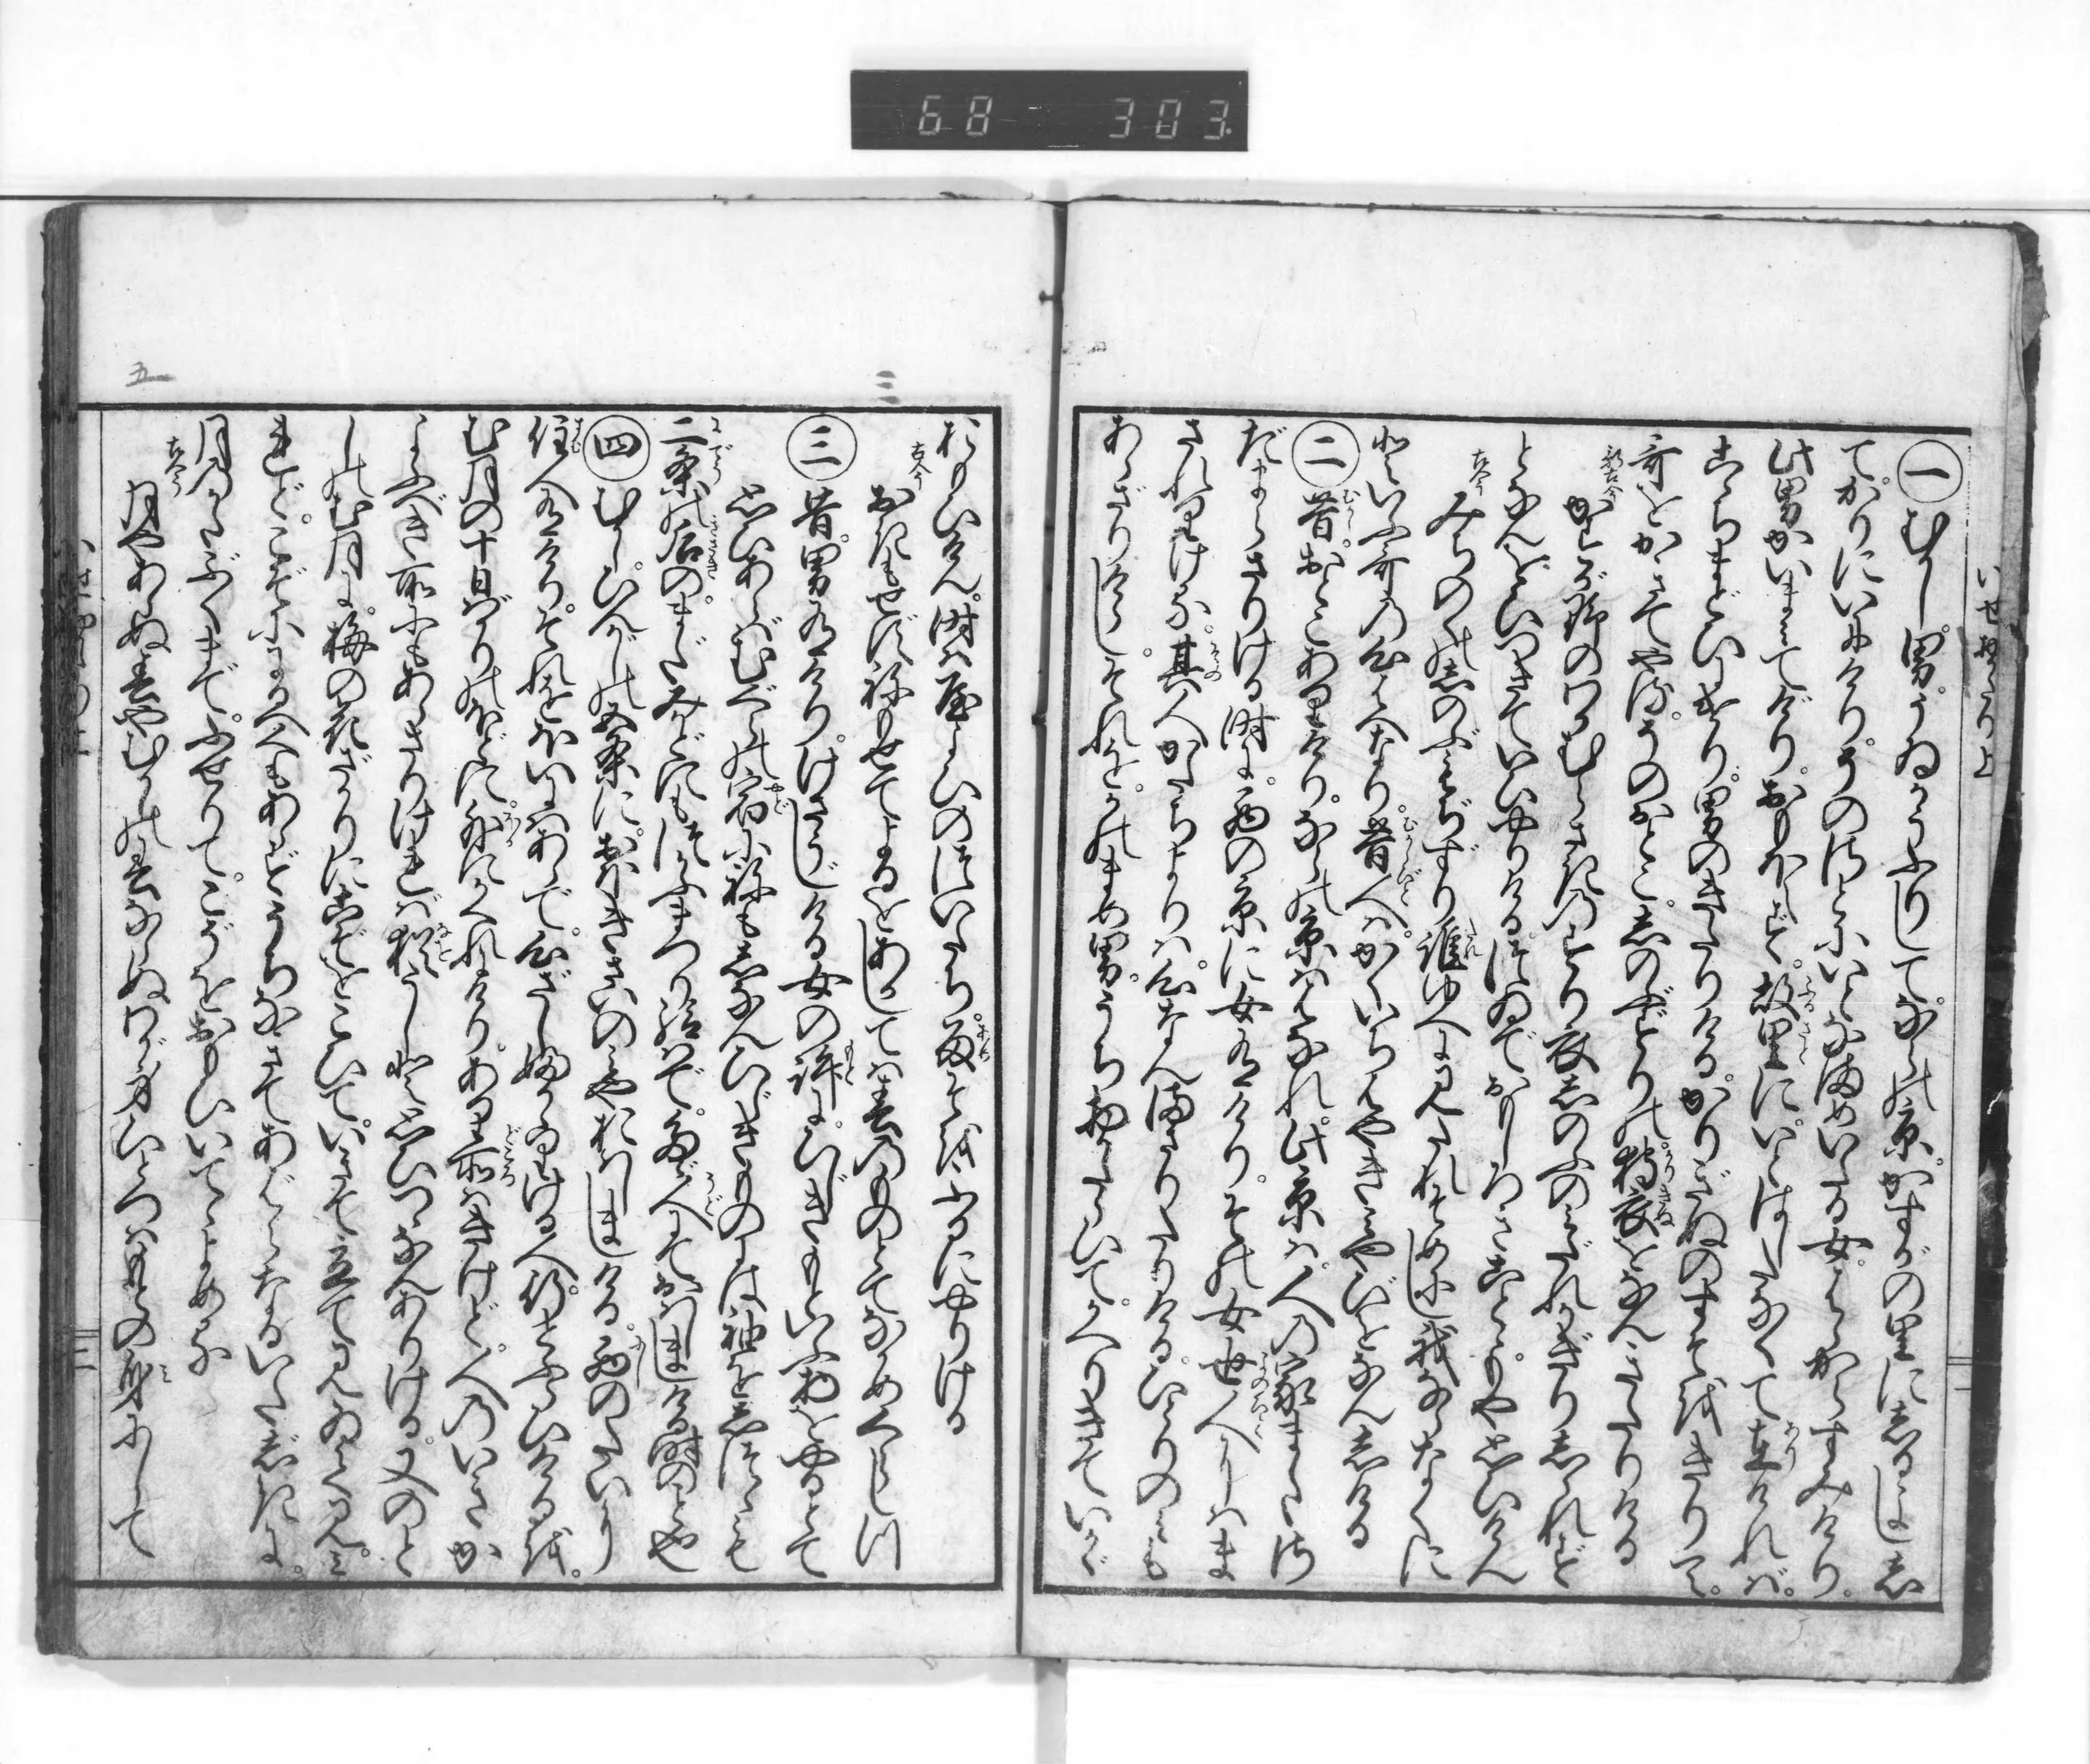 68 303
いせ物かたり上
一 むかし男。うゐかうふりして。ならの京。かすがの里に。しるよしし
てかりにいにけり。その里に。いとなまめいたる女はらからすみけり。
此男かいまみてげり。おもほえず。故里に。いとはしたなくて在ければ。
心ちまどひにけり。男のきたりける。かりぎぬのすそをきりて。
哥をかきてやる。そのおとこ。しのぶずりの。狩衣をなんきたりける
新古今 かすが野のわかむらさきのすり衣しのぶのみだれかぎりしられず
となんをひつきていひやりける。ついでおもしろきことゝもや思ひけん
古今 みちのくの忍ぶもぢずり誰ゆへにみだれそめにし我ならなくに
といふ哥の心ばへなり。昔人は。かくいちはやきみやびをなんしける
二 昔。おとこありけり。ならの京ははなれ。此京は。人の家まだ
だまらざりける時に。西の京に女有けり。その女世人にはま
されりけり。其人かたちよりは。心なんまさりたりける。ひとりのみも
あらざりけらし。それを。かのまめ男。うち物かたらひて。かへりきていかゞ
おもひけん。時はやよひのついたち。雨そをふるにやりける
古今 おきもせずねもせでよるをあかしては春の物とてながめくらしつ
三 昔。男有けり。けさうじける女の許に。ひじきもといふ物をやるとて
思ひあらばむぐらの宿にねもしなんひじきものには袖をしつゝも
二条の后の。まだみかどにもつかふまつり給はで。たゞ人にておはしましける時のことや
四 むかし。ひがしの五条に。おほきさいのみやおはしましける。西のたいに
住人有けり。それをほいにはあらで。心ざしふかゝりける人。行とふらひけるを。
む月の十日ばかりのほどに。外にかくれにけり。あり所はきけど。人のいきか
よふべき所にもあらざりければ。猶うしと思ひつゝなんありける。又のと
しのむ月に。梅の花ざかりにこぞをこひて。いきて立て見ゐて見。み
れど。こぞににるべくもあらずうちなきてあばらなるいたじきに。
月のかたふくまで。ふせりて。こぞをおもひいてゝよめる
古今 月やあらぬ春やむかしの春ならぬわが身ひとつはもとの身にして
三
五